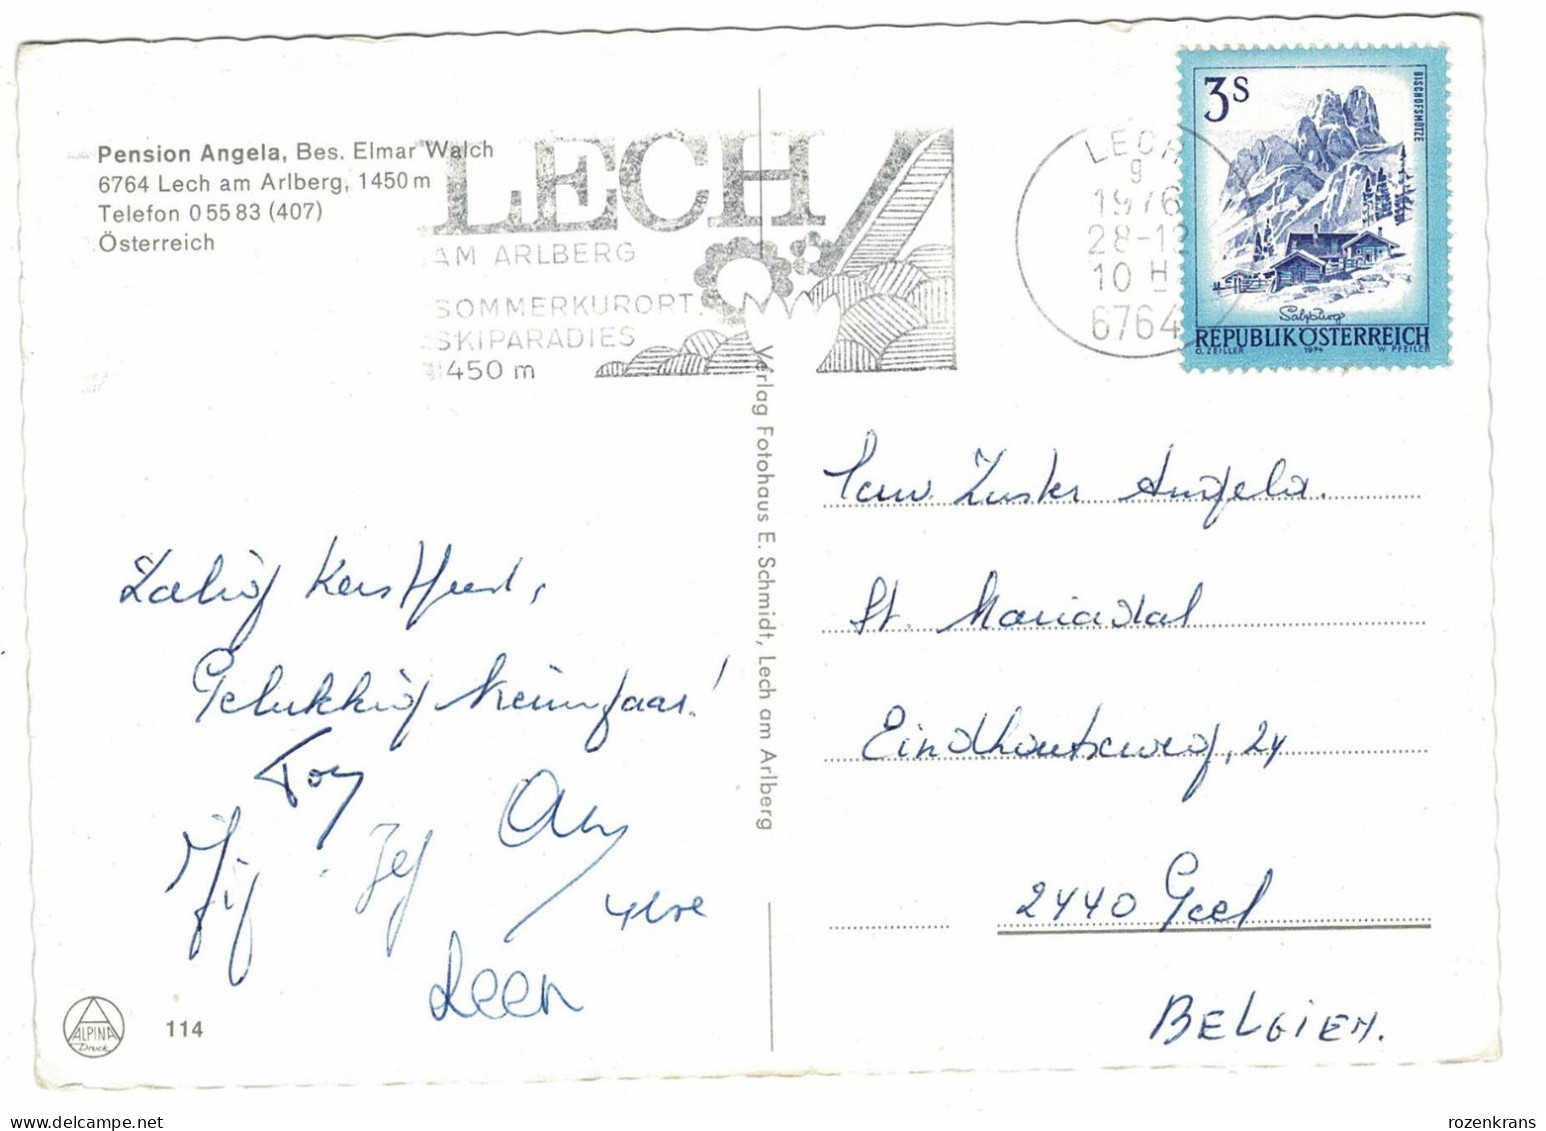 Pension Angela, Bes. Elmar Walch
6764 Lech am Arlberg, 1450 m
Telefon 0 55 83 (407)
Österreich
LECH
AM ARLBERG
SOMMERKURORT.
SKIPARADIES
1450 m
LECH
g
1976
28-12
10 H
6764
3S
BISCHOFSMÜTZE
Salzburg
REPUBLIK ÖSTERREICH
O. ZEILLER 1974 W. PFEILER
Verlag Fotohaus E. Schmidt, Lech am Arlberg
Zalig Kerstfeest,
Gelukkig Nieuwjaar!
Jef
Leen
Eerw. Zuster Angela.
St. Mariadal
Eindhoutseweg, 24
2440 Geel
BELGIEN.
ALPINA
Druck
114
rozenkrans